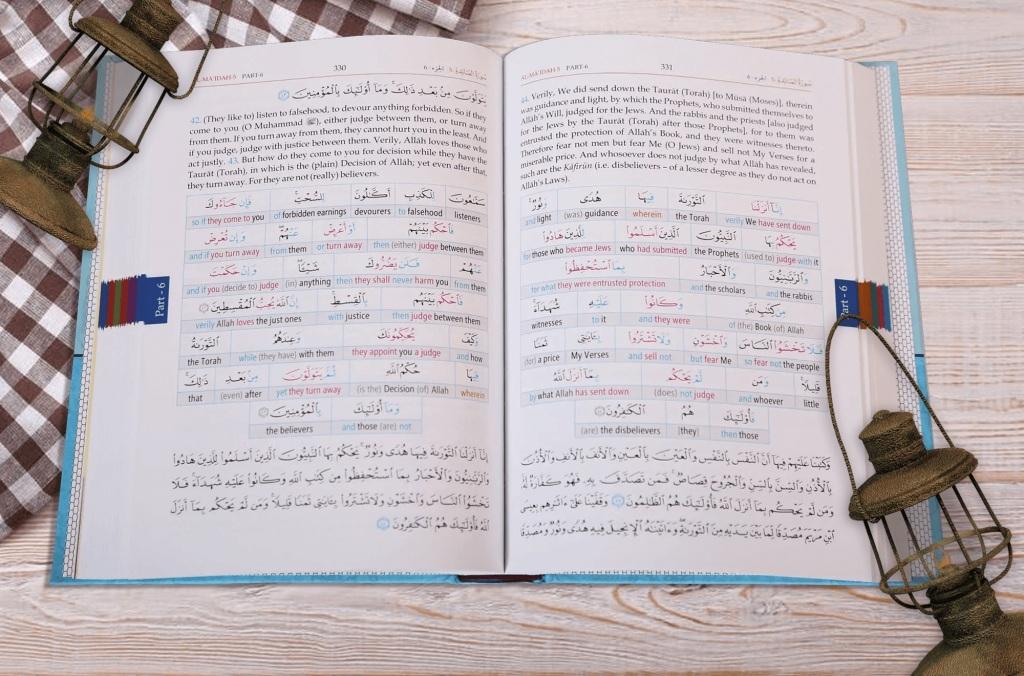 AL-MÂ'IDAH-5 PART-6
330
الجزء-٦
سورة المائدة-٥
يَتَوَلَّوْنَ مِنْ بَعْدِ ذَٰلِكَ ۚ وَمَا أُولَٰئِكَ بِالْمُؤْمِنِينَ
42. (They like to) listen to falsehood, to devour anything forbidden. So if they
come to you (O Muhammad ﷺ), either judge between them, or turn away
from them. If you turn away from them, they cannot hurt you in the least. And
if you judge, judge with justice between them. Verily, Allâh loves those who
act justly. 43. But how do they come to you for decision while they have the
Taurât (Torah), in which is the (plan) Decision of Allâh; yet even after that,
they turn away. For they are not (really) believers.
سَمَّاعُونَ لِلْكَذِبِ أَكَّالُونَ لِلسُّحْتِ فَإِن جَاءُوكَ
so if they come to you of forbidden earnings devourers to falsehood listeners
فَاحْكُم بَيْنَهُمْ أَوْ أَعْرِضْ عَنْهُمْ وَإِن تُعْرِضْ
and if you turn away from them or turn away then (either) judge between them
عَنْهُمْ فَلَن يَضُرُّوكَ شَيْئًا وَإِنْ حَكَمْتَ
and if you (decide to) judge (in) anything then they shall never harm you from them
فَاحْكُم بَيْنَهُم بِالْقِسْطِ إِنَّ اللَّهَ يُحِبُّ الْمُقْسِطِينَ
verily Allah loves the just ones with justice then judge between them
وَكَيْفَ يُحَكِّمُونَكَ وَعِندَهُمُ التَّوْرَاةُ
the Torah while (they have) with them they appoint you a judge and how
فِيهَا حُكْمُ اللَّهِ ثُمَّ يَتَوَلَّوْنَ مِن بَعْدِ ذَٰلِكَ
that (even) after yet they turn away (is the) Decision (of) Allah wherein
وَمَا أُولَٰئِكَ بِالْمُؤْمِنِينَ
the believers and those (are) not
إِنَّا أَنزَلْنَا التَّوْرَاةَ فِيهَا هُدًى وَنُورٌ ۚ يَحْكُمُ بِهَا النَّبِيُّونَ الَّذِينَ أَسْلَمُوا لِلَّذِينَ هَادُوا
وَالرَّبَّانِيُّونَ وَالْأَحْبَارُ بِمَا اسْتُحْفِظُوا مِن كِتَابِ اللَّهِ وَكَانُوا عَلَيْهِ شُهَدَاءَ ۚ فَلَا
تَخْشَوُا النَّاسَ وَاخْشَوْنِ وَلَا تَشْتَرُوا بِآيَاتِي ثَمَنًا قَلِيلًا ۚ وَمَن لَّمْ يَحْكُم بِمَا أَنزَلَ
اللَّهُ فَأُولَٰئِكَ هُمُ الْكَافِرُونَ
Part - 6
AL-MÂ'IDAH-5 PART-6
331
الجزء-٦
سورة المائدة-٥
44. Verily, We did send down the Taurât (Torah) [to Mûsâ (Moses)], therein
was guidance and light, by which the Prophets, who submitted themselves to
Allâh's Will, judged for the Jews. And the rabbis and the priests [also judged
for the Jews by the Taurât (Torah) after those Prophets], for to them was
entrusted the protection of Allâh's Book, and they were witnesses thereto.
Therefore fear not men but fear Me (O Jews) and sell not My Verses for a
miserable price. And whosoever does not judge by what Allâh has revealed,
such are the Kâfirûn (i.e. disbelievers – of a lesser degree as they do not act on
Allâh's Laws).
إِنَّا أَنزَلْنَا التَّوْرَاةَ فِيهَا هُدًى وَنُورٌ
and light (was) guidance wherein the Torah verily We have sent down
يَحْكُمُ بِهَا النَّبِيُّونَ الَّذِينَ أَسْلَمُوا لِلَّذِينَ هَادُوا
for those who became Jews who had submitted the Prophets (used to) judge with it
وَالرَّبَّانِيُّونَ وَالْأَحْبَارُ بِمَا اسْتُحْفِظُوا
for what they were entrusted protection and the scholars and the rabbis
مِن كِتَابِ اللَّهِ وَكَانُوا عَلَيْهِ شُهَدَاءَ
witnesses to it and they were of (the) Book (of) Allah
فَلَا تَخْشَوُا النَّاسَ وَاخْشَوْنِ وَلَا تَشْتَرُوا بِآيَاتِي ثَمَنًا
(for) a price My Verses and sell not but fear Me so fear not the people
قَلِيلًا وَمَن لَّمْ يَحْكُم بِمَا أَنزَلَ اللَّهُ
by what Allah has sent down (does) not judge and whoever little
فَأُولَٰئِكَ هُمُ الْكَافِرُونَ
(are) the disbelievers [they] then those
وَكَتَبْنَا عَلَيْهِمْ فِيهَا أَنَّ النَّفْسَ بِالنَّفْسِ وَالْعَيْنَ بِالْعَيْنِ وَالْأَنفَ بِالْأَنفِ وَالْأُذُنَ
بِالْأُذُنِ وَالسِّنَّ بِالسِّنِّ وَالْجُرُوحَ قِصَاصٌ ۚ فَمَن تَصَدَّقَ بِهِ فَهُوَ كَفَّارَةٌ لَّهُ
وَمَن لَّمْ يَحْكُم بِمَا أَنزَلَ اللَّهُ فَأُولَٰئِكَ هُمُ الظَّالِمُونَ وَقَفَّيْنَا عَلَىٰ آثَارِهِم بِعِيسَى
ابْنِ مَرْيَمَ مُصَدِّقًا لِّمَا بَيْنَ يَدَيْهِ مِنَ التَّوْرَاةِ ۖ وَآتَيْنَاهُ الْإِنجِيلَ فِيهِ هُدًى وَنُورٌ وَمُصَدِّقًا
Part - 6